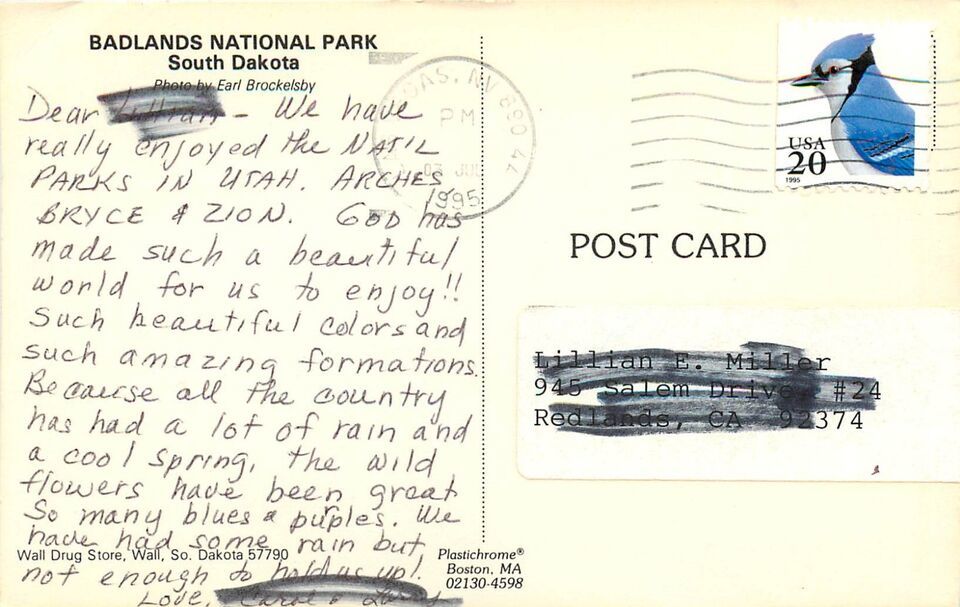 BADLANDS NATIONAL PARK
South Dakota
Photo by Earl Brockelsby
Dear – We have
really enjoyed the NAT'L
PARKS IN UTAH. ARCHES
BRYCE & ZION. GOD has
made such a beautiful
world for us to enjoy!!
Such beautiful colors and
such amazing formations.
Because all the country
has had a lot of rain and
a cool spring, the wild
flowers have been great
So many blues & purples. We
have had some rain but
not enough to hold us up!
Love,
Wall Drug Store, Wall, So. Dakota 57790
Plastichrome®
Boston, MA
02130-4598
NV 890
PM
03 JUL
1995
USA
20
1995
POST CARD